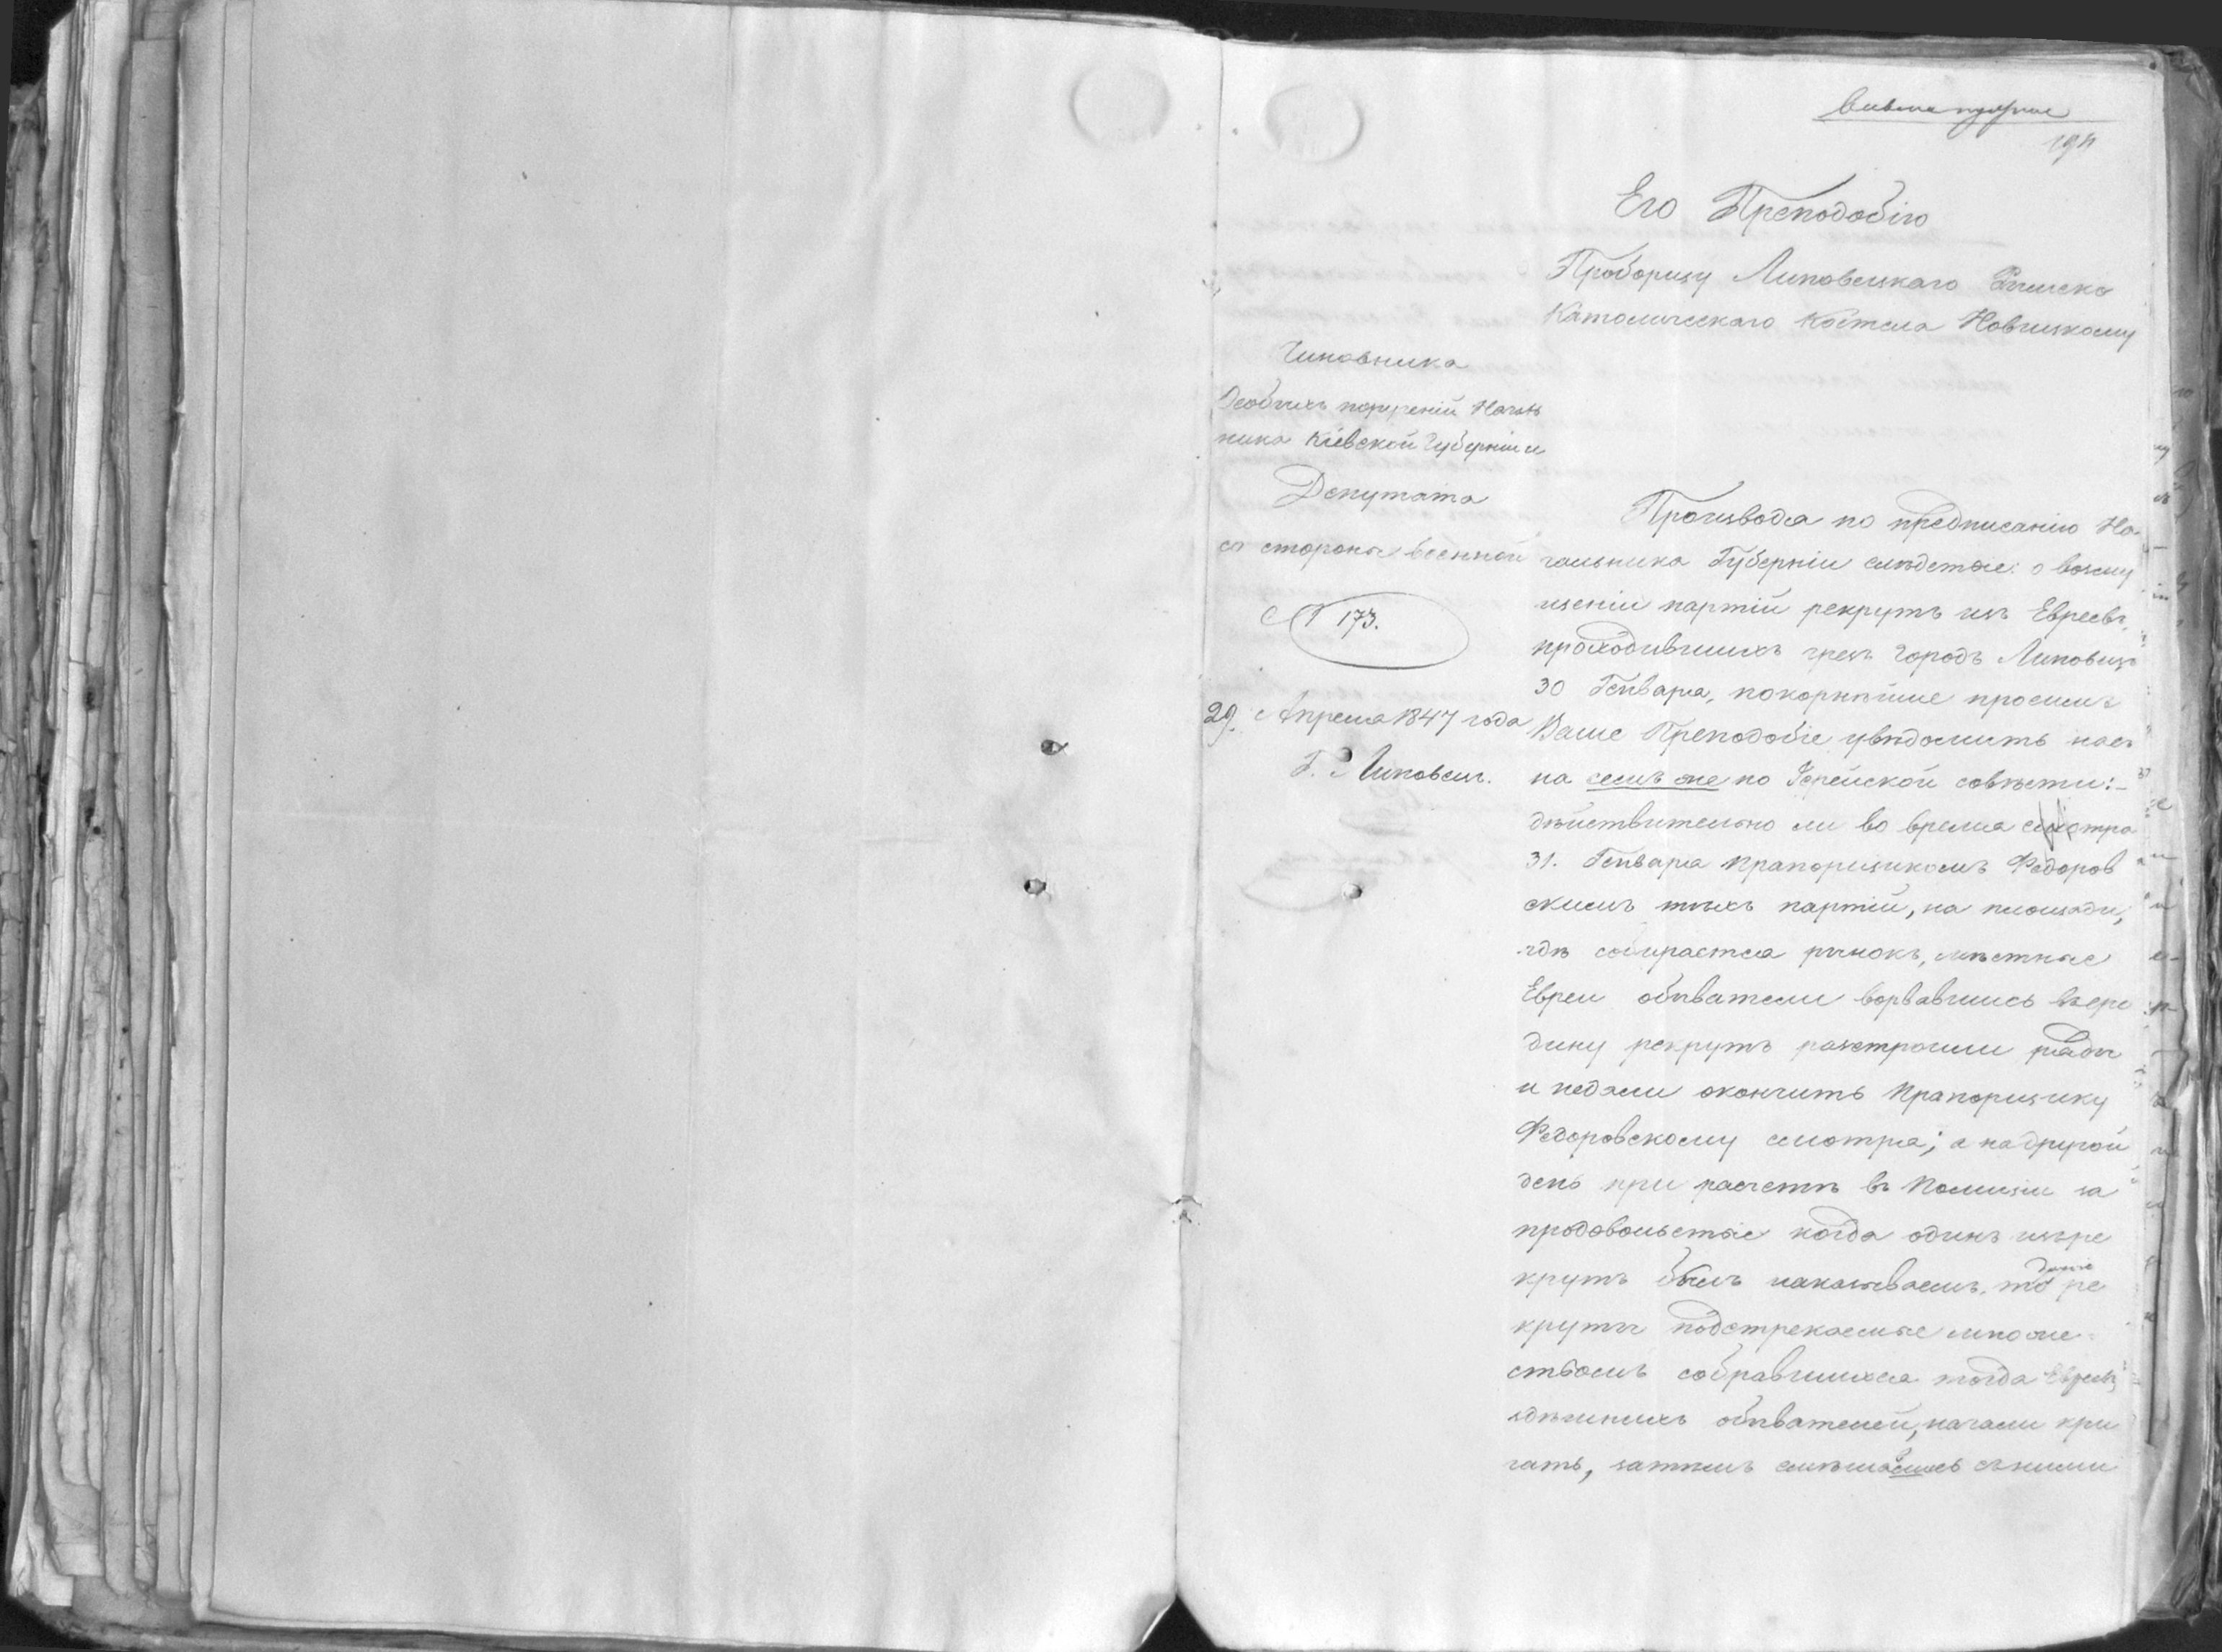 194
Его Преподобію
Проборщу Липовецкаго Римско
Католическаго Костела Новицкому
Чиновника
Особыхъ порученій Началь
ника Кіевской Губерніи и
Депутата
съ стороны военной
№ 173.
29. Апреля 1847 года
Г. Липовецъ.
Производя по предписанію На-
чальника Губерніи следствіе: о возму
щеніи партій рекрутъ изъ Евреевъ,
проходившихъ чрезъ городъ Липовецъ
30 Генваря, покорнѣйше просимъ
Ваше Преподобіе увѣдомить насъ
на семъ же по Іерейской совѣсти:-
дѣйствительно ли во время смотра
31. Генваря Прапорщикомъ Федоров
скимъ тѣхъ партій, на площади,
гдѣ собирается рынокъ, мѣстные
Евреи обыватели ворвавшись всере
дину рекрутъ разстроили ряды
и недали окончить Прапорщику
Федоровскому смотра; а надругой
день при расчетѣ въ Полиціи за
продовольствіе когда одинъ изъре
крутъ былъ наказываемъ, то другіе ре
круты подстрекаемые множе-
ствомъ собравшихся тогда Евреевъ
здѣшнихъ обывателей, начали кри
чать, затемъ смѣшались съними